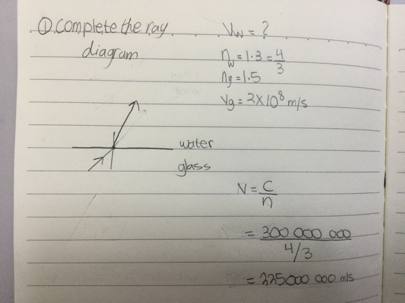 ① Complete the ray
diagram
Vw = ?
ηw = 1.3 = 4/3
ηg = 1.5
Vg = 2×10⁸ m/s
water
glass
V = C/η
= 300 000 000 / 4/3
= 225000 000 m/s